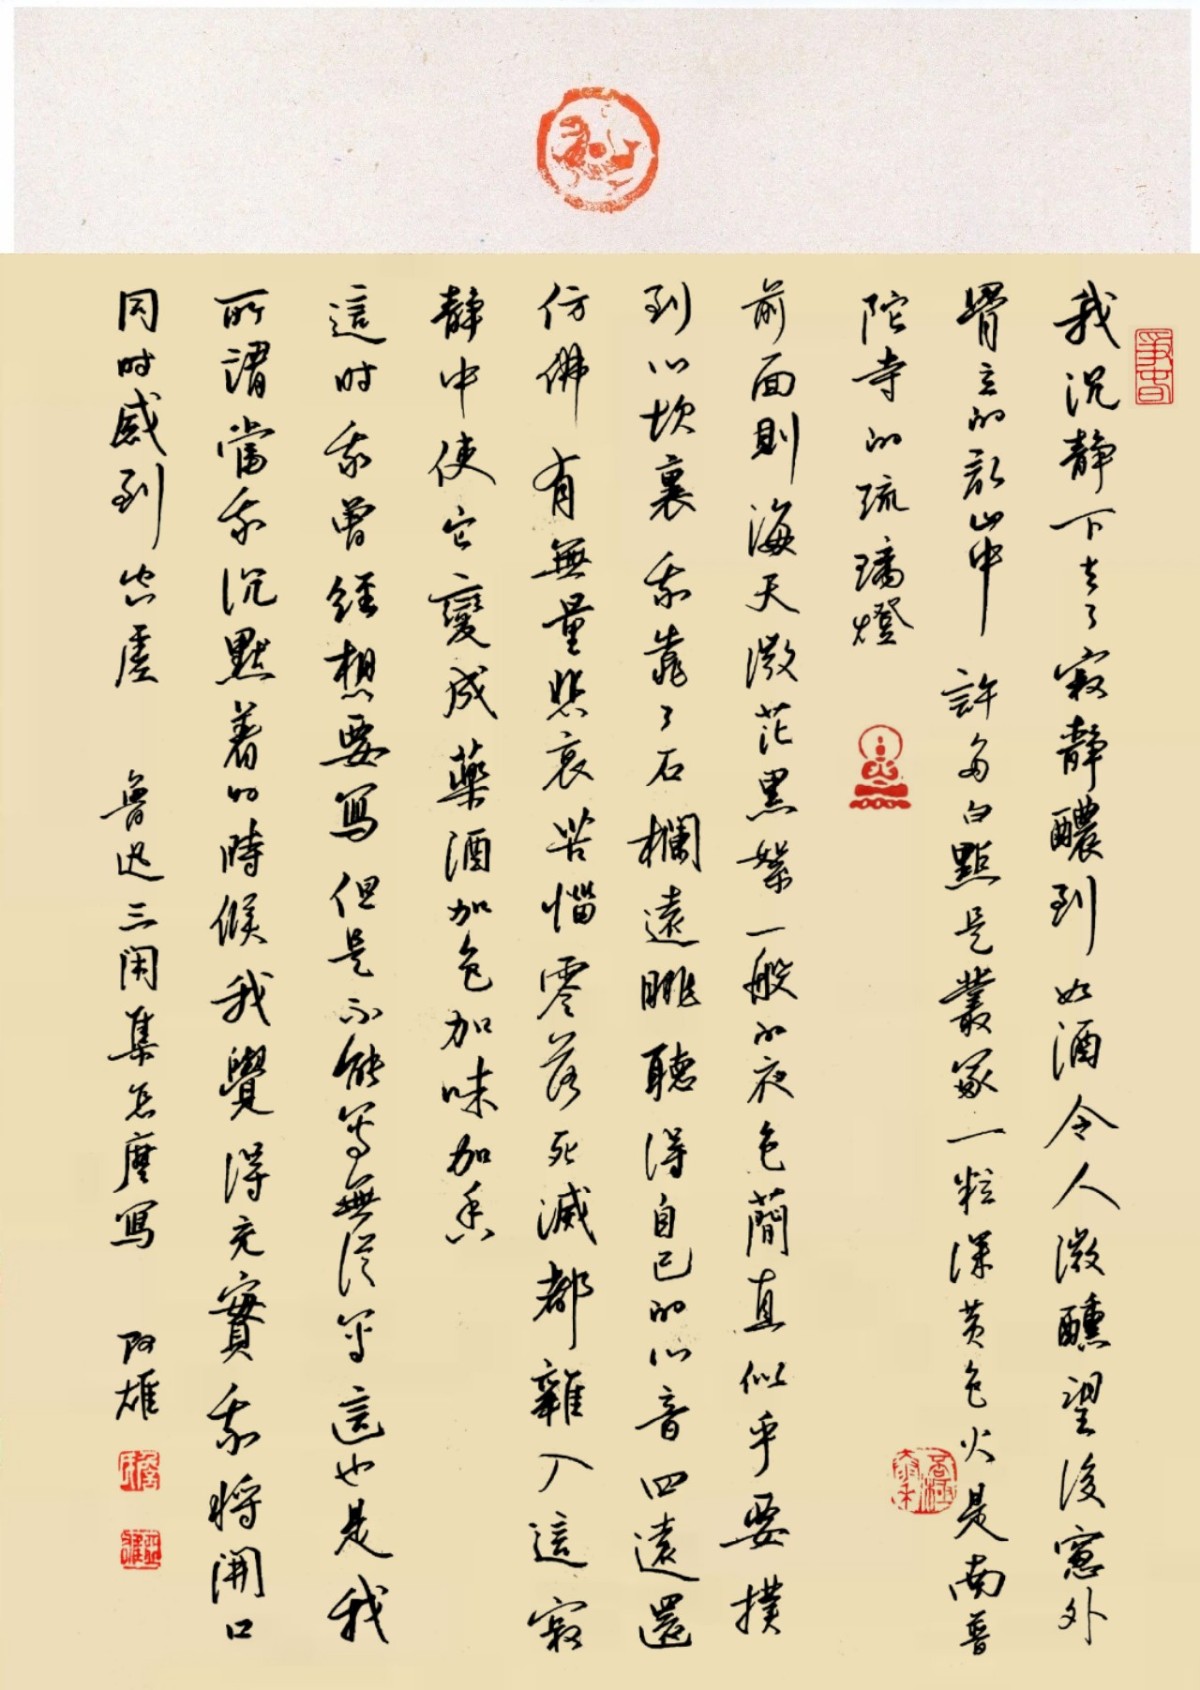 我沉静下去了寂静醲到如酒令人微醺望後窻外
骨立的乱山中許多白點是叢冢一粒深黄色火是南普
陀寺的琉璃燈
前面則海天微茫黑絮一般的夜色簡直似乎要撲
到心坎裏我靠了石欄遠眺聽得自己的心音四遠還
仿佛有無量悲哀苦惱零落死滅都雜入這寂
静中使它變成藥酒加色加味加香
這时我曾經想要寫但是不能寫無從寫這也是我
所謂當我沉默着的時候我覺得充實我將開口
同时感到空虚 魯迅三闲集怎麽寫 阿雄